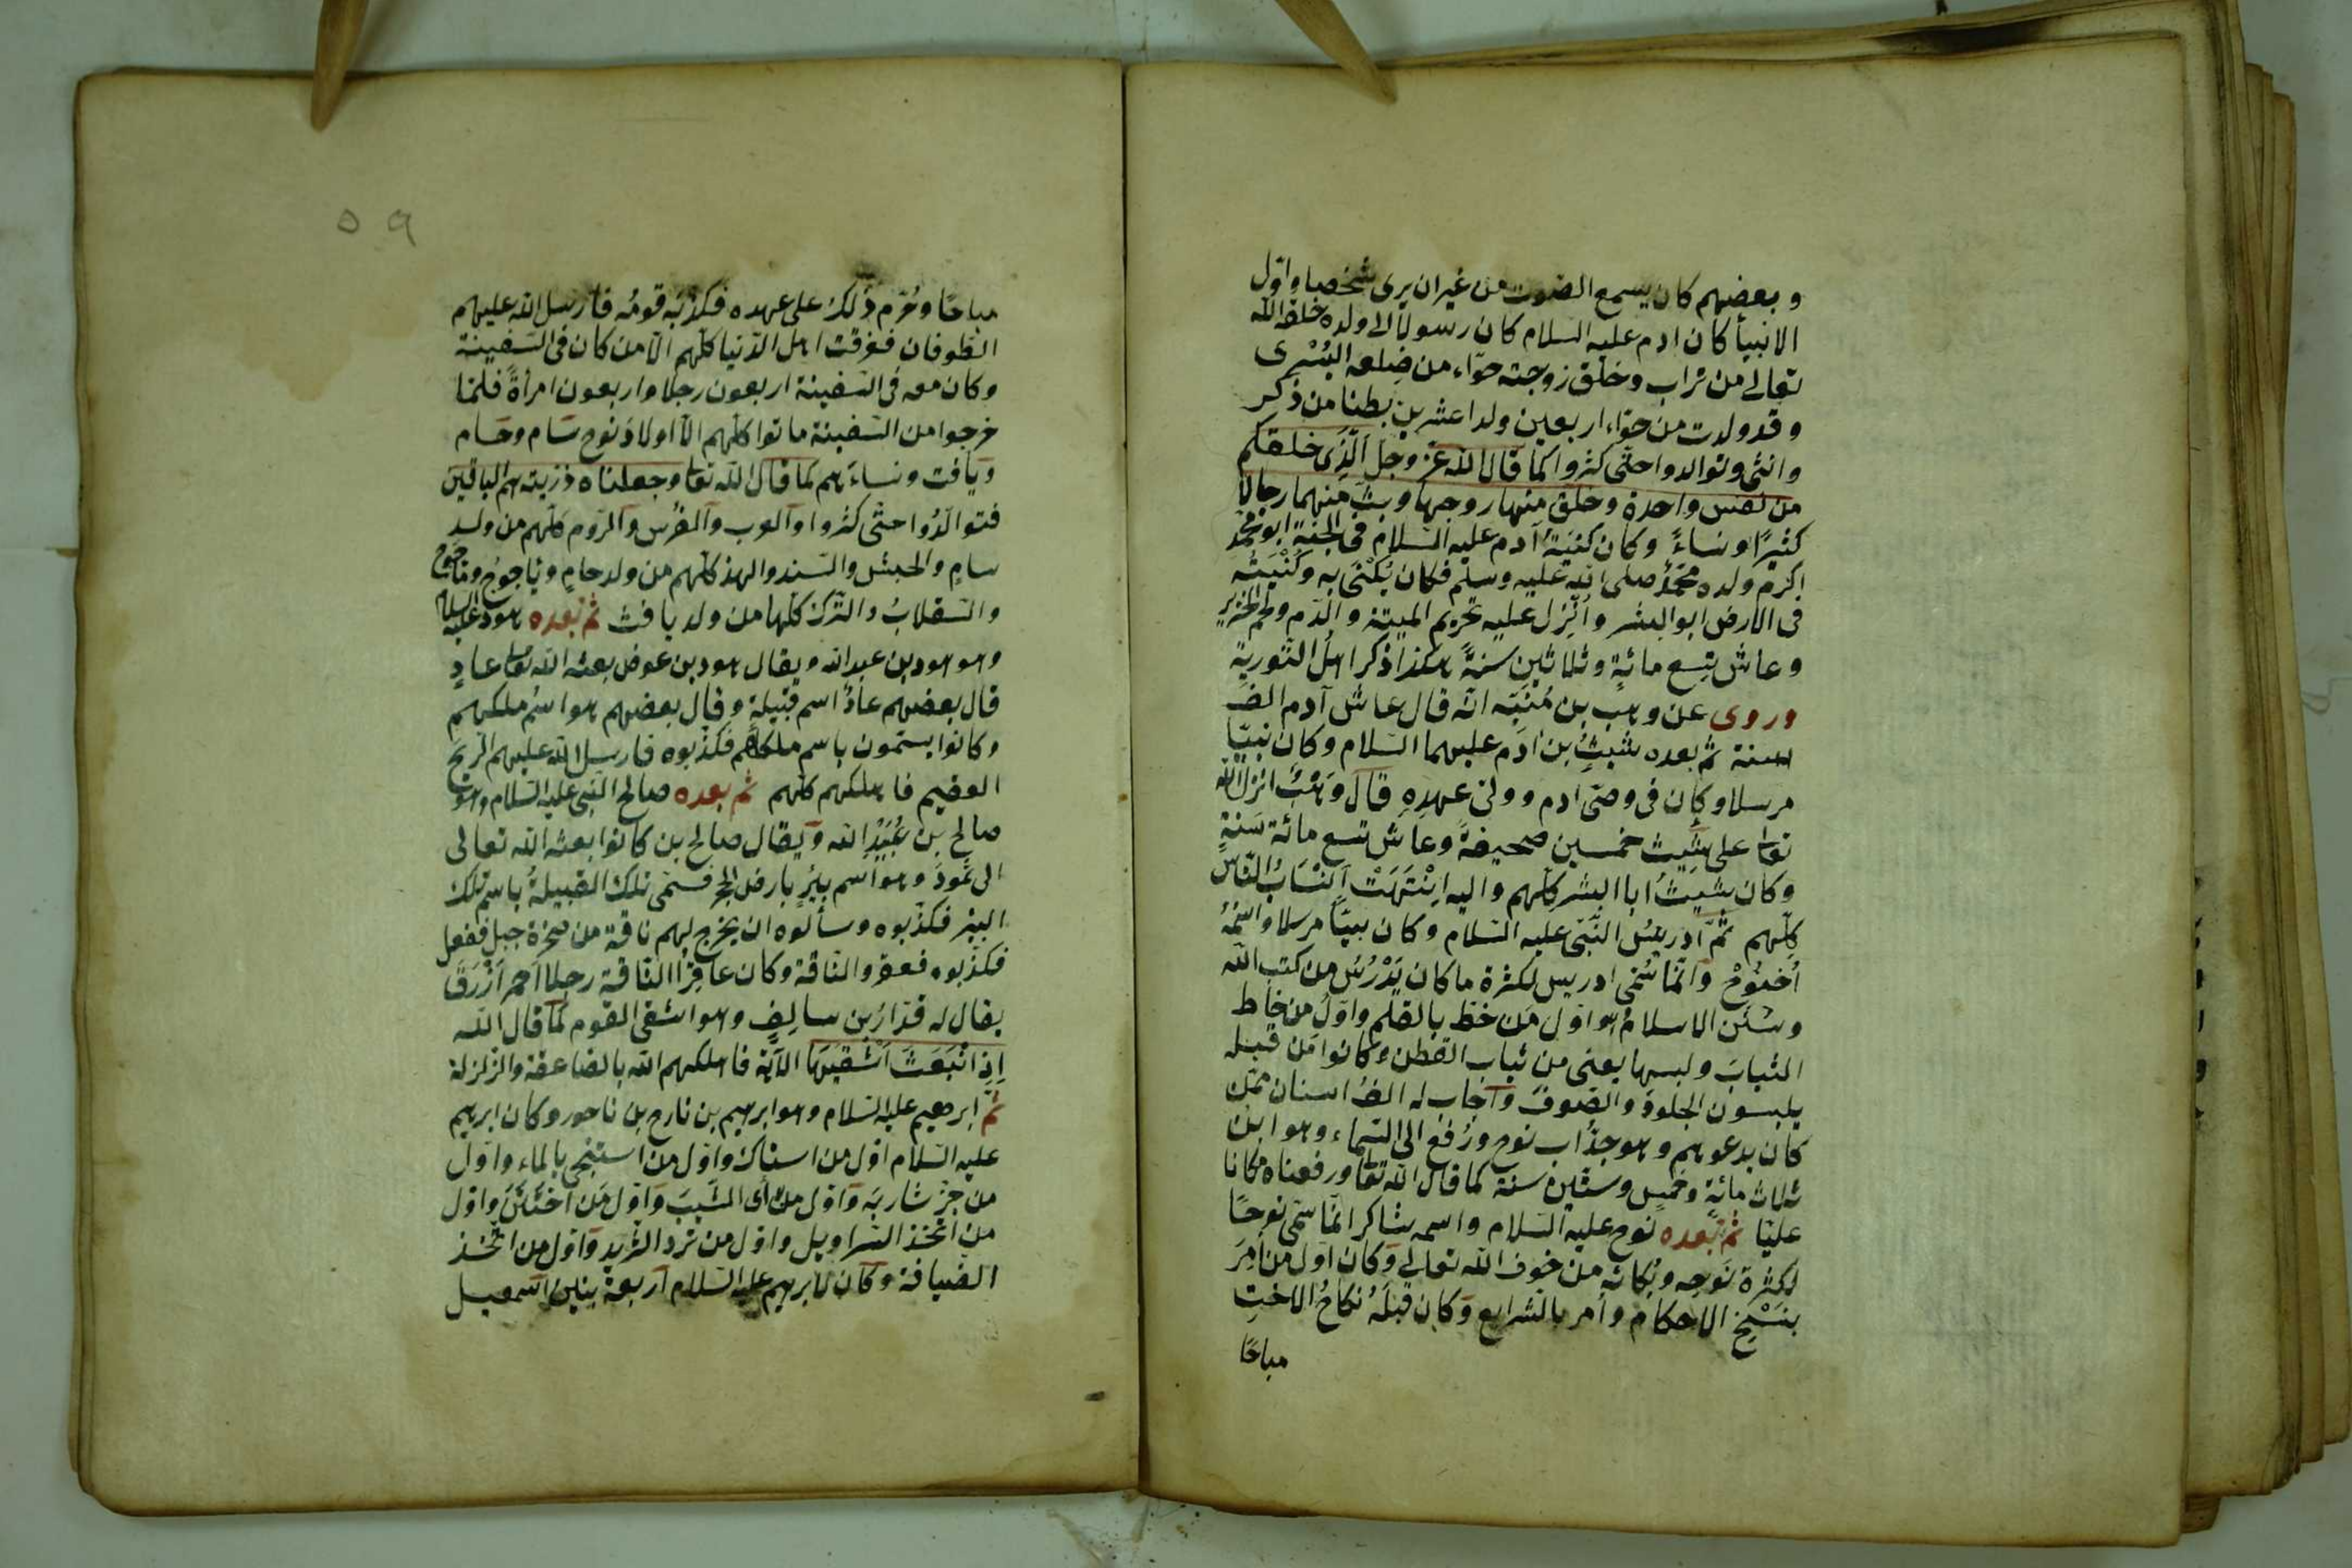 وبعضهم كان يسمع الصوت من غير ان يرى شخصا واوّل
الانبيأ كان ادم عليه السلام كان رسولا الى ولده خلقه الله
تعالى من تراب وخلق زوجته حوّاء من ضِلعه اليُسْرى
وقد ولدت من حوّاء اربعين ولدا عشرين بطنا من ذكر
وانثى وتوالدوا حتّى كثروا كما قال الله عزّ وجلّ الّذى خلقكم
من نفس واحدة وخلق منها زوجها وبثّ منهما رجالًا
كثيرًا ونساءً وكان كنيَةُ آدم عليه السلام فى الجنّة ابو محمّد
اكرم ولده محمّد صلى الله عليه وسلم فكان يُكْنَى به وكُنْيَتُه
فى الارض ابو البشر وأُنْزِل عليه تحريم الميتة والدّم ولحم الخنزير
وعاش تِسع مائةٍ وثلاثين سنةً هكذا ذكر اهلُ التّورية
وروى عن وهب بن مُنَبّه انّه قال عاش آدم الف
سنة ثم بعده شيثُ بن ادَم عليهما السّلام وكان نبيّا
مرسلا وكان فى وصىّ ادم وولىّ عهدِهِ قال وَهْبٌ انزل الله
تعا على شيث خمسين صحيفةً وعاش تسع مائة سَنَةٍ
وكان شيثُ ابا البشر كلّهم واليه اِنْتَهَتْ اَنْسَابُ النّاس
كلّهم ثمّ ادريسُ النَّبىّ عليه السّلام وكان نبيّا مرسلا واسمُهُ
أُخنُوخ وانّما سُمّى ادريس لكثرة ما كان يَدْرُسُ من كتب الله
وسنن الاسلام هو اوّل مَن خطّ بالقلم واوّلُ من خاط
الثيابَ ولبسها يعنى من ثياب القطن وكانوا من قبله
يلبسون الجلودَ والصّوفَ واجاب له الفُ انسان ممّن
كان يدعوهم وهو جدُّ اب نوح ورُفع الى السّماء وهو ابن
ثلاث مائةٍ وخمسٍ وستّين سنة كما قال الله تعا ورفعناه مكانا
عليّا ثم بعده نوح عليه السّلام واسمه شاكر انّما سمّى نوحًا
لكثرة نَوحِه وبكائه من خوف الله تعالى وكان اوّل من أُمِرَ
بنَسْخِ الاحكام وأمر بالشرايع وكان قبلَهُ نكاحُ الاختِ
مباحًا
٥٩
مباحًا وحُرّم ذلك على عهده فكذّبه قومُه فارسل الله عليهم
الطوفان فغرقت اهل الدّنيا كلّهم الّا من كان فى السّفينة
وكان معه فى السّفينة اربعون رجلا واربعون امرأةً فلمّا
خرجوا من السّفينة ماتوا كلّهم الّا اولادَ نوح سَام وحَام
ويافث ونساءَهم كما قال الله تعا وجعلناه ذرّيته هم الباقين
فتوالَدُوا حتّى كثروا والعرب والفُرس والرّوم كلّهم من ولد
سامٍ والحبش والسّند والهند كلّهم من ولد حامٍ وياجوج وماجوج
والسّقلابُ والتّرك كلّها من ولد يافث ثم بعده هود عليه السلام
وهو هود بن عبد الله ويقال هود بن عوض بعثه الله تعا عادٍ
قال بعضهم عادٌ اسم قبيلةٍ وقال بعضهم هو اسمُ ملكهم
وكانوا يسمّون باسم ملكهم فكذّبوه فارسل الله عليهم الرّيح
العقيم فاهلكهم كلّهم ثم بعده صالح النّبى عليه السّلام وهو
صالح بن عُبَيْدِ الله ويقال صالح بن كانوا بعثه الله تعالى
الى ثمودَ وهو اسم بئرٍ بارض الحجر فسمّى تلك القبيلةُ باسم تلك
البئر فكذّبوه وسألوه ان يخرج لهم ناقة من صخرة جبل ففعل
فكذّبوه فعقروا النّاقة وكان عاقِرُ النّاقة رجلا احمر ازْرَقَ
يقال له قدارُ بن سالِفٍ وهو اشقى القوم كما قال الله
اِذِ انْبَعَثَ اَشْقيَهَا الآيَة فاهلكهم الله بالصّاعقة والزلزلة
ثمّ ابرهيم عليه السّلام وهو ابرهيم بن تارح بن ناحور وكان ابرهيم
عليه السّلام اوّل من استاك واوّل من استنجى بالماء واوّل
من جزّ شاربَه واوّل من رأى الشّيبَ واوّل من اختَتَن واوّل
من اتّخذ السّراويل واوّل من ثرد الثّريد واوّل من اتّخذ
الضّيافة وكان لابرهيم عليه السّلام اربعة بنين اسمعيل